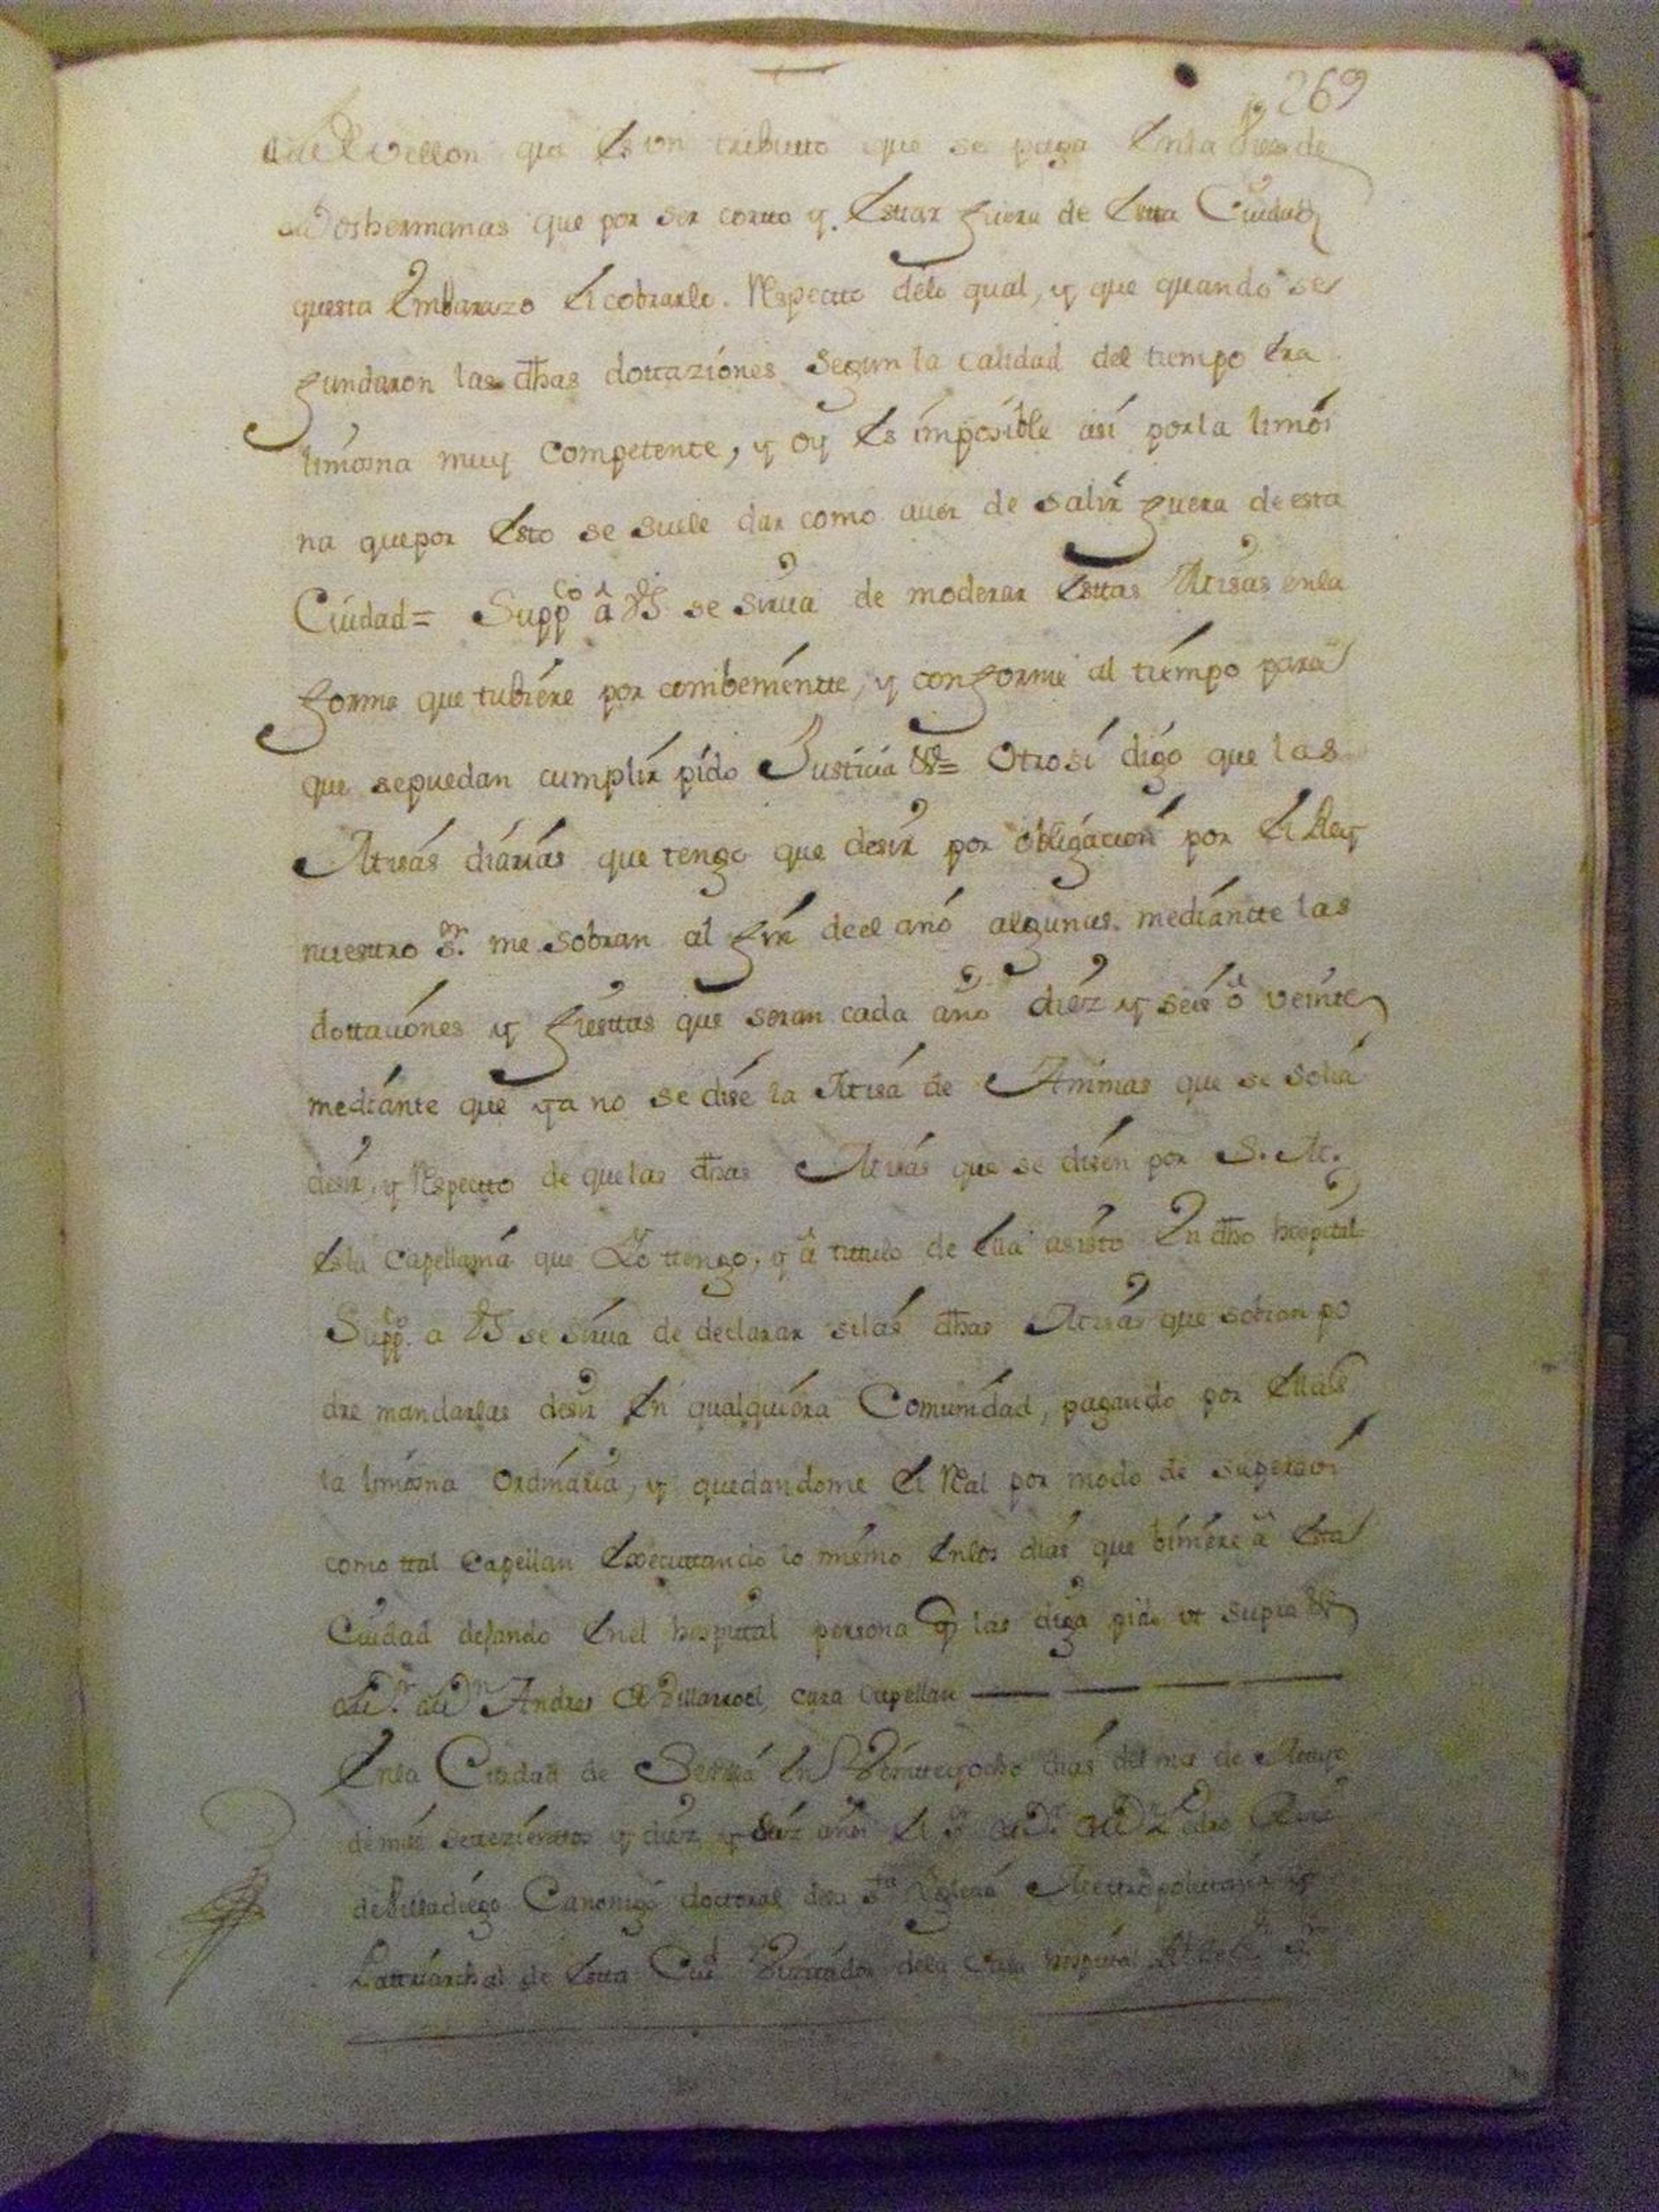 269
de Vellon que es un tributo que se paga en la de
Doshermanas que por ser corto y estar fuera de esta Ciudad
questa embarazo el cobrarlo. Respecto delo qual, y que quando se
fundaron las dhas dottaziónes segun la calidad del tiempo era
limosna muy competente, y oy es imposible asi por la limós
na quepor esto se suele dar como auer de salir fuera de esta
Ciudad= Suppco â VS se sirua de moderar esttas Misas enla
forma que tubiére por combeniénte, y conforme al tiémpo para
que sepuedan cumplir pido Justicia &= Otrosi digo que las
Misas diarias que tengo que desir por obligacion por el Rey
nuestro sr. me sobran al fin deel año algunas mediante las
dottaciónes y fiesttas que seran cada año diéz y seis ô veinte
mediante que ya no se dise la Misa de Animas que se solia
desir, y Respecto de quelas dhas Misas que se disen por S. M.
es la Capellania que Yo ttengo, y â titulo de ella asisto en dho hospital
Suppco. a VS se sirua de declarar silas dhas Misas que sobran po
dre mandarlas desir en qualquiera Comunidad, pagando por ellas
la limosna ordinaria, y quedandome el Real por modo de superabi
como ttal Capellan executtando lo mismo enlos dias que biniére â esta
Ciudad dejando enel hospital persona q las diga pido ut supra &
Dr. Dn Andres de Villarroel, cura Capellan
Enla Ciudad de Sevilla en Veinteyocho dias del mes de Mayo
de mill settezientos y diez y años el Sr Dr. Dn Pedro
de Villadiego Canonigo doctoral dela Sta Yglesia Mettropolitana y
Pattriarchal de esta Ciud Visitador dela Casa hospital